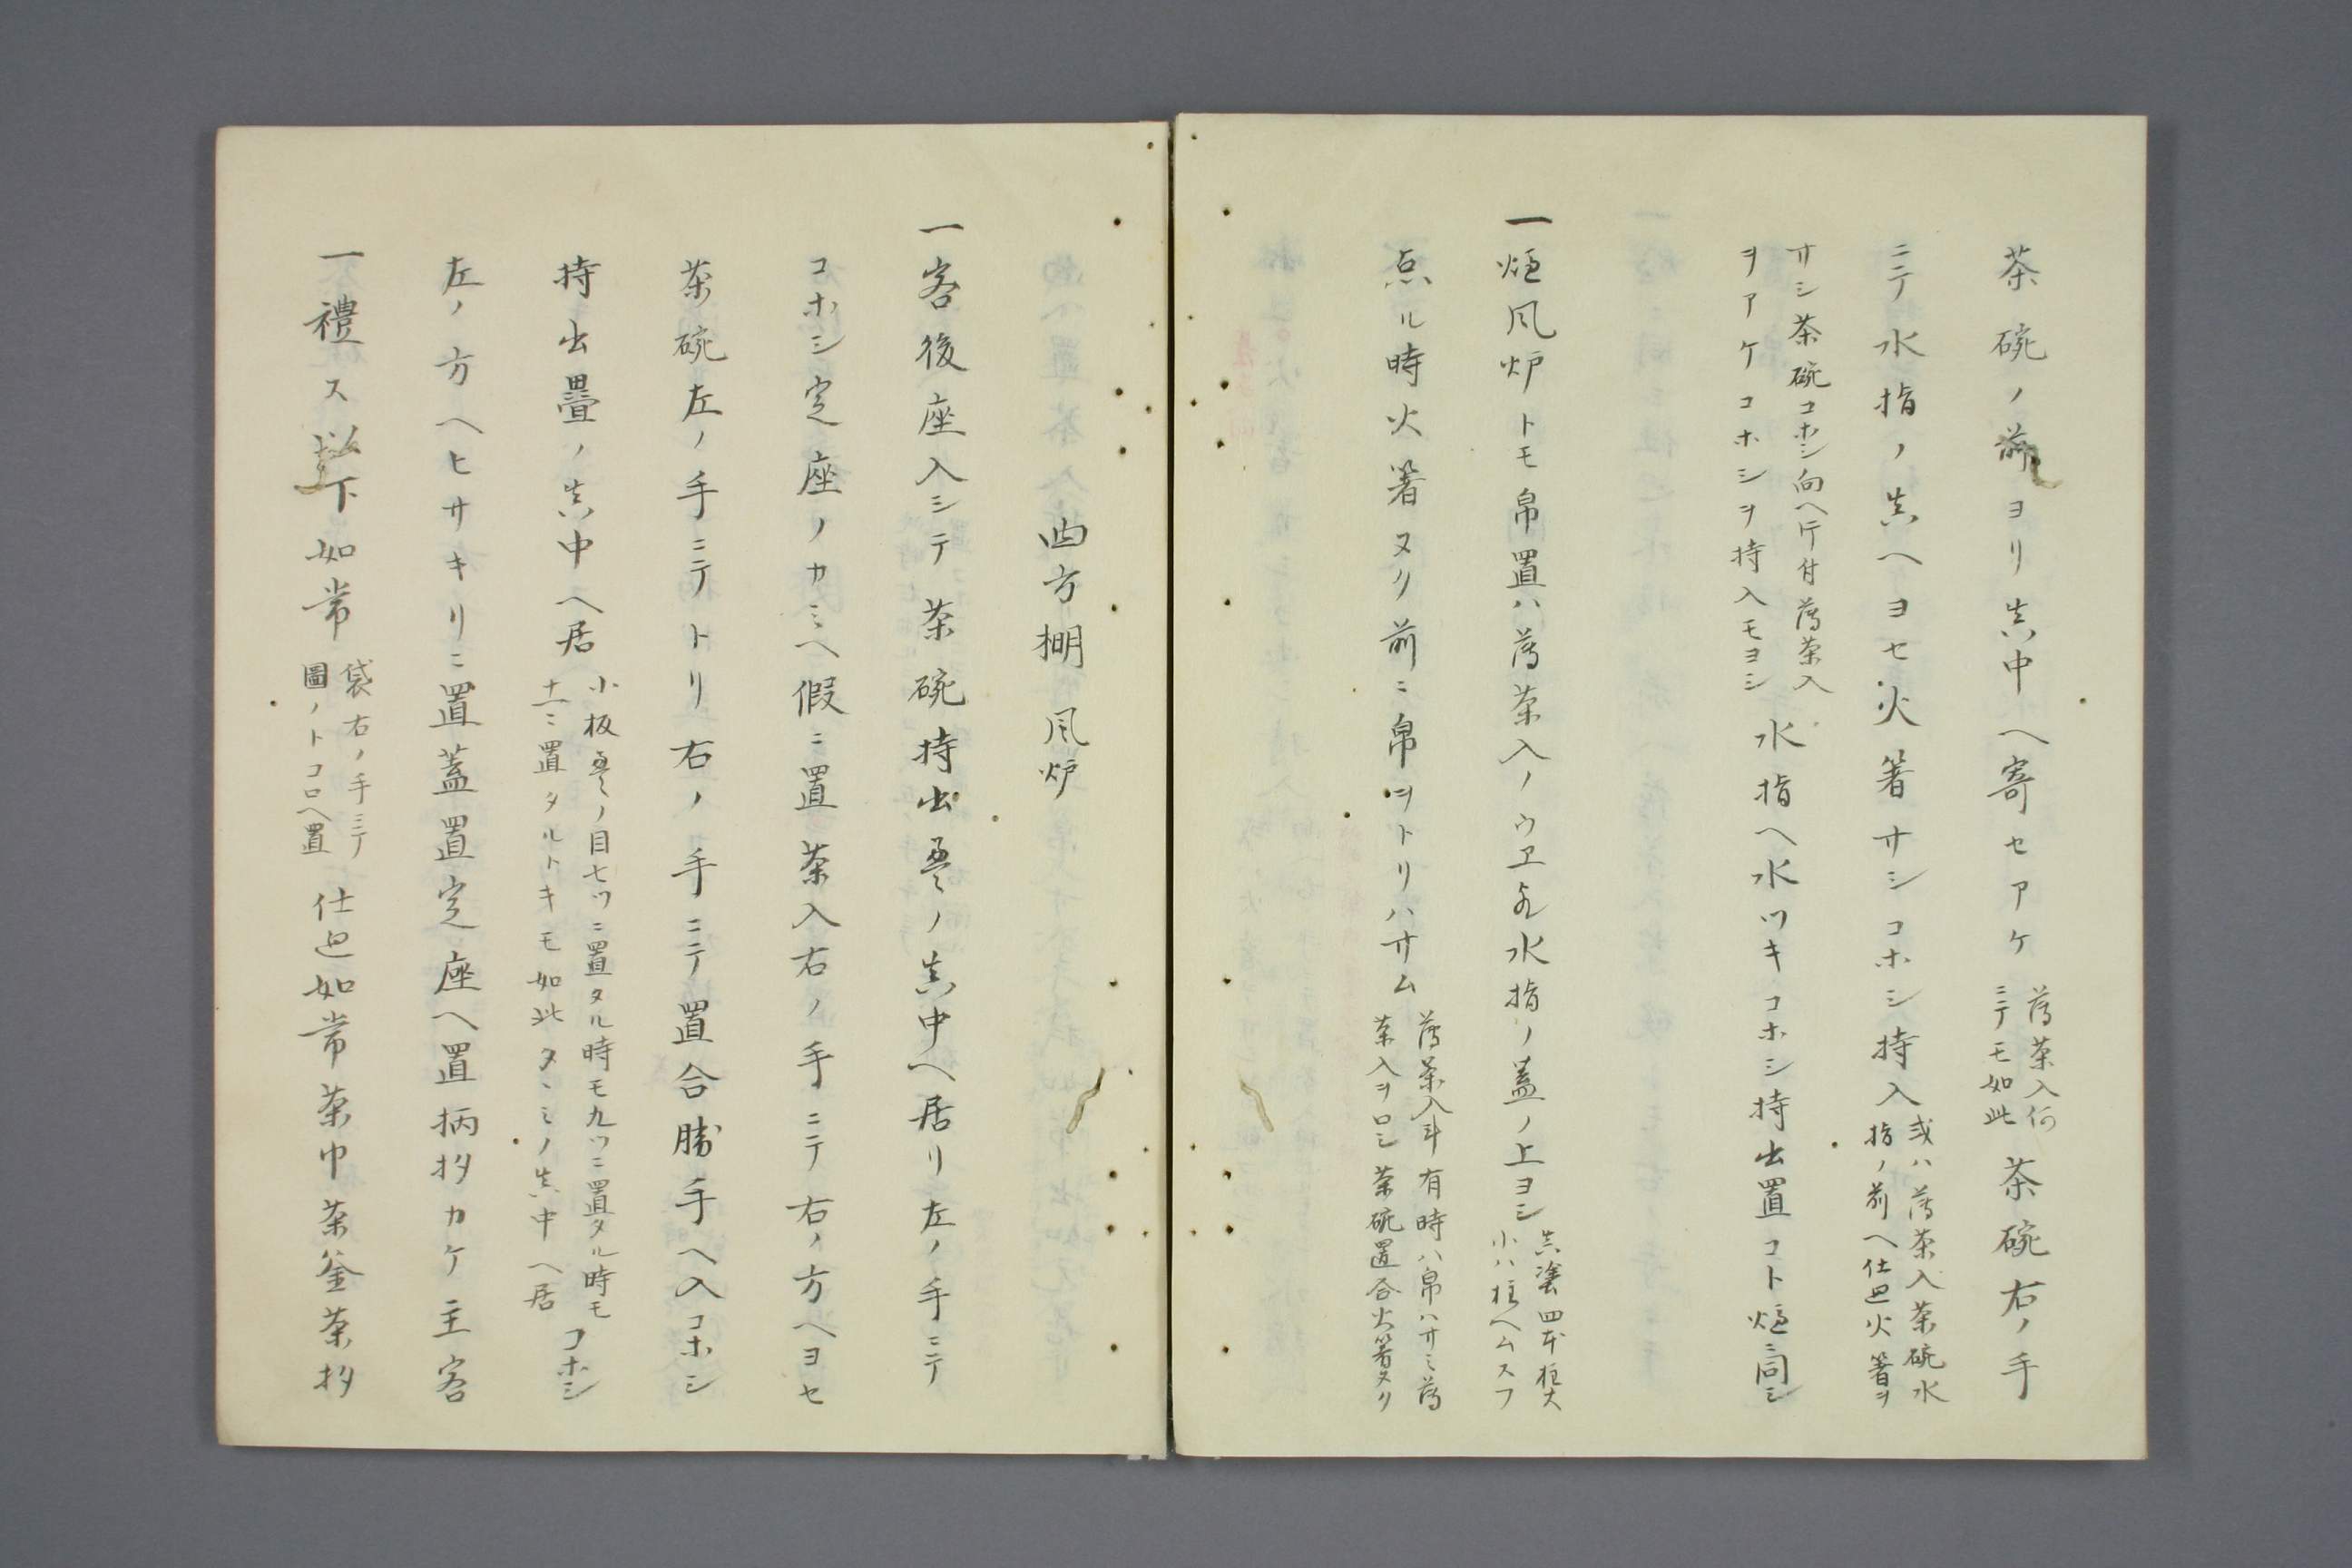 茶碗ノ前ヨリ真中ヘ寄セアケ
薄茶入何
ニテモ如此
茶碗右ノ手
ニテ水指ノ真ヘヨセ火箸サシコホシ持入
或ハ薄茶入茶碗水
指ノ前ヘ仕廻火箸ヲ
サシ茶碗コホシ向ヘ片付薄茶入
ヲアケコホシヲ持入モヨシ
水指ヘ水ツキコホシ持出置コト炉ニ同シ
一炉風炉トモ帛置ハ薄茶入ノウヱ又水指ノ蓋ノ上ヨシ
真塗四本柱大
小ハ柱ヘムスフ
点ル時火箸ヌク前ニ帛ヲトリハサム
薄茶入斗有時ハ帛ハサミ薄
茶入ヲロシ茶碗置合火箸ヌク
四方棚風炉
一客後座入シテ茶碗持出畳ノ真中ヘ居リ左ノ手ニテ
コホシ定座ノカミヘ假ニ置茶入右ノ手ニテ右ノ方ヘヨセ
茶碗左ノ手ニテトリ右ノ手ニテ置合勝手ヘ入コホシ
持出畳ノ真中ヘ居
小板畳ノ目七ツニ置タル時モ九ツニ置タル時モ
十一ニ置タルトキモ如此タヽミノ真中ヘ居
コホシ
左ノ方ヘヒサキリニ置蓋置定座ヘ置柄杓カケ主客
一禮ス以下如常
袋右ノ手ニテ
圖ノトコロヘ置
仕廻如常茶巾茶釜茶杓